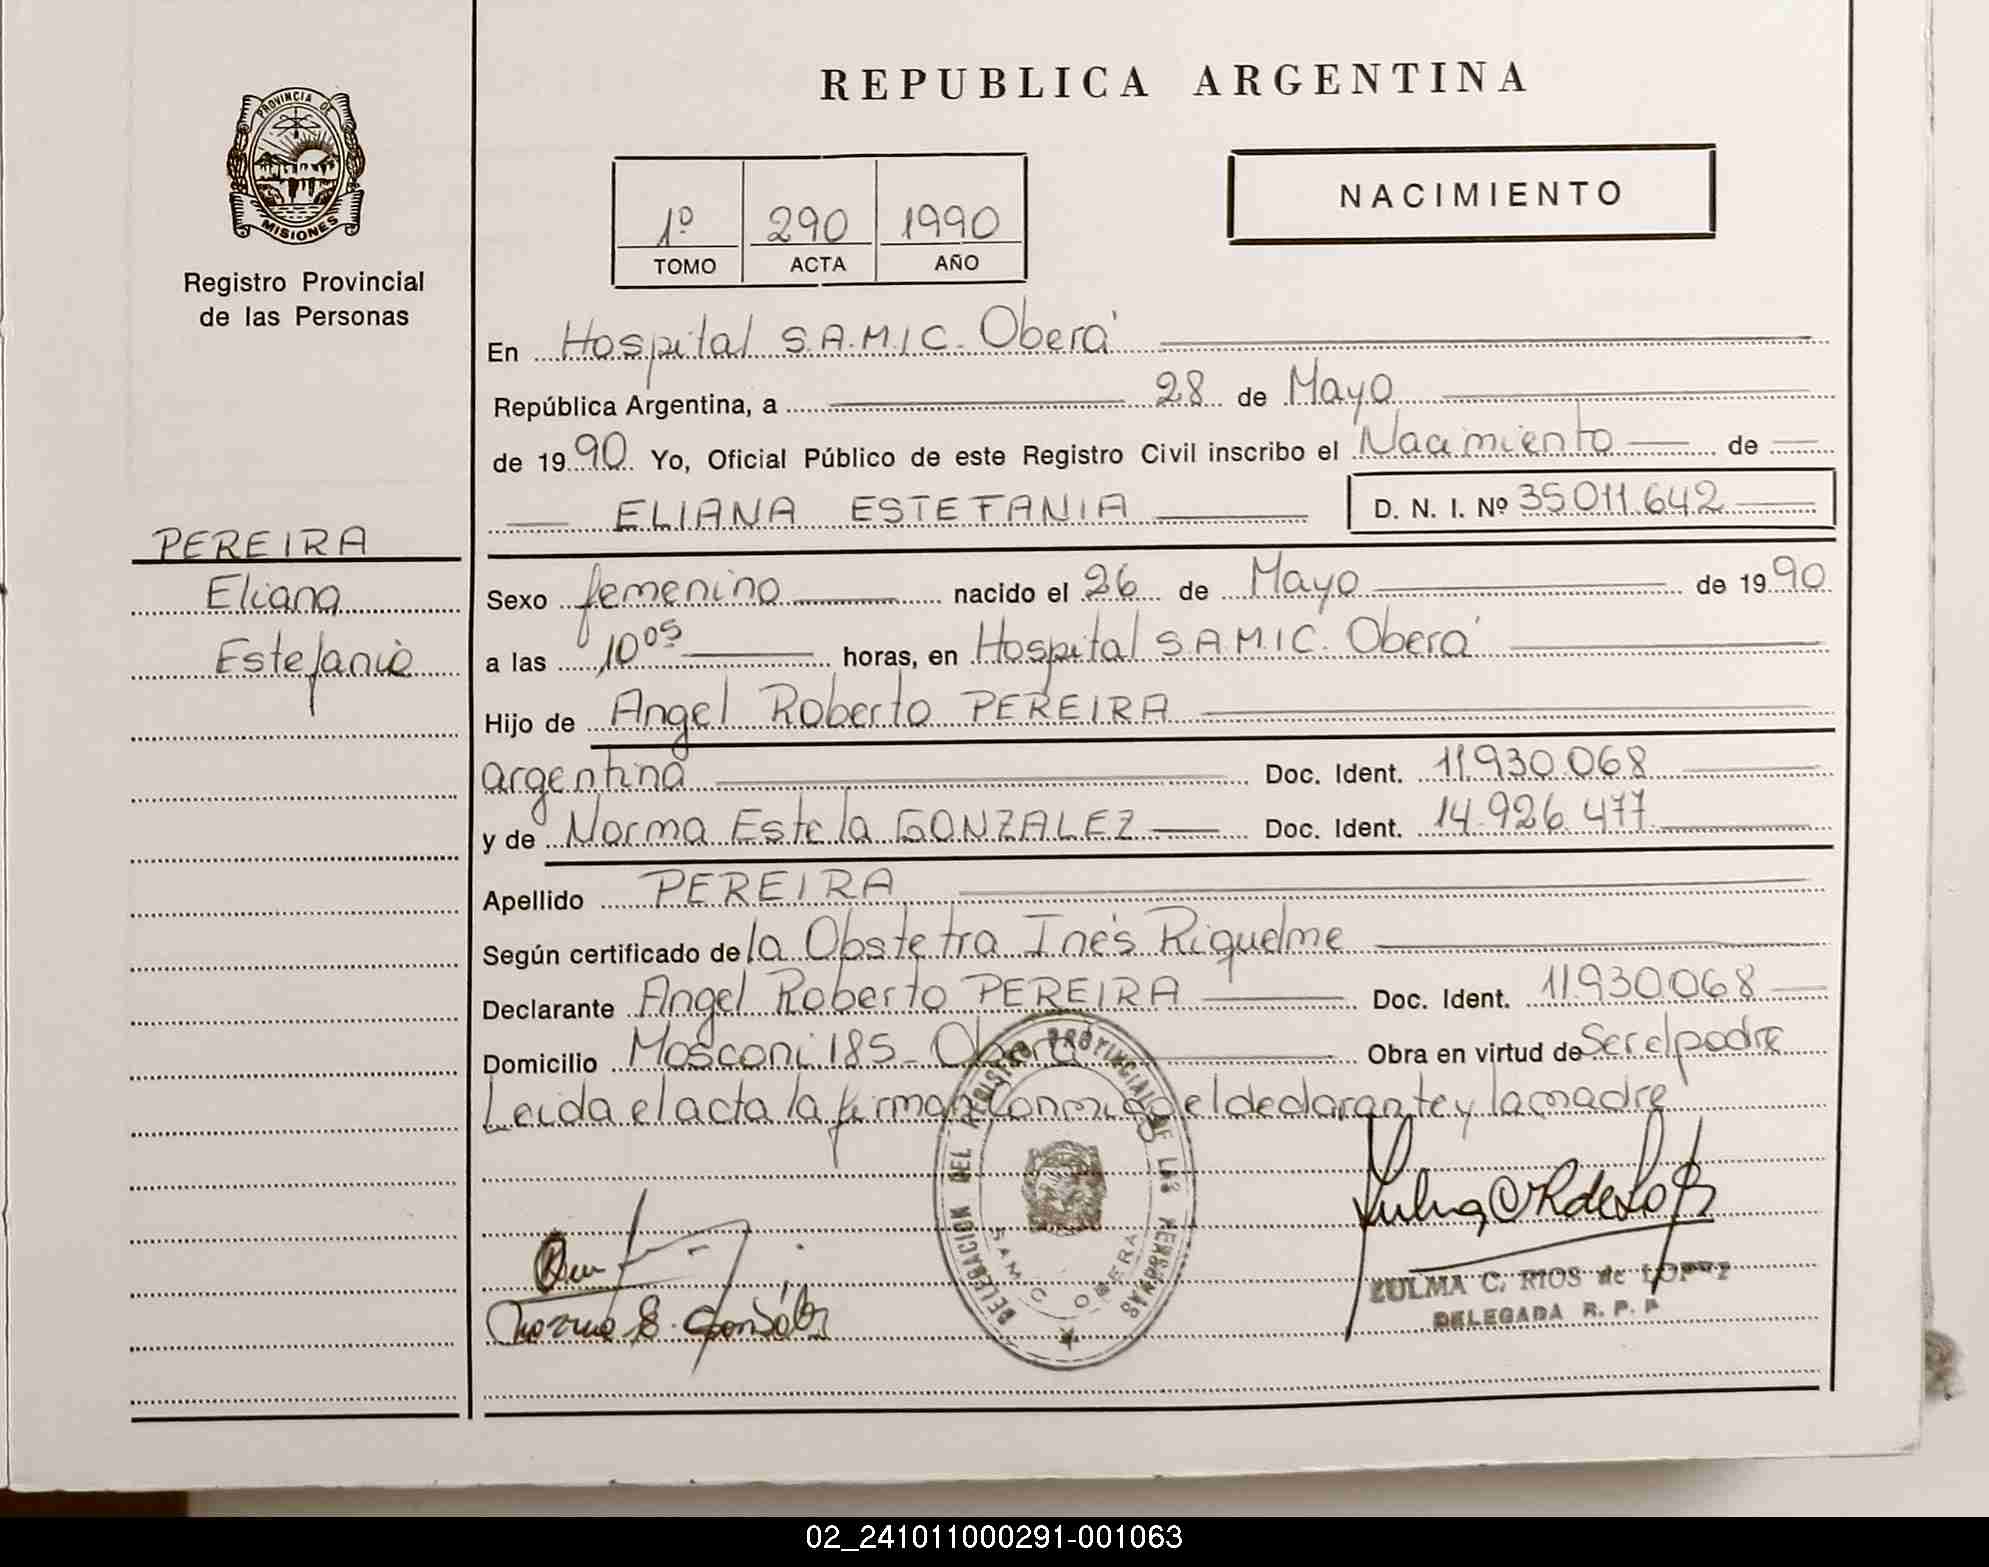 REPUBLICA ARGENTINA
PROVINCIA DE
MISIONES
Registro Provincial
de las Personas
NACIMIENTO
1º 290 1990
TOMO ACTA AÑO
En Hospital S.A.M.I.C. Oberá
República Argentina, a 28 de Mayo
de 1990 Yo, Oficial Público de este Registro Civil inscribo el Nacimiento de
ELIANA ESTEFANIA D. N. I. Nº 35.011.642
PEREIRA
Eliana
Estefania
Sexo femenino nacido el 26 de Mayo de 1990
a las 10⁰⁵ horas, en Hospital S.A.M.I.C. Oberá
Hijo de Angel Roberto PEREIRA
argentina Doc. Ident. 11.930.068
y de Norma Estela GONZALEZ Doc. Ident. 14.926.477
Apellido PEREIRA
Según certificado de la Obstetra Inés Riquelme
Declarante Angel Roberto PEREIRA Doc. Ident. 11.930.068
Domicilio Mosconi 185 - Oberá Obra en virtud de Ser el padre
Leida el acta la firman conmigo el declarante y la madre
DELEGACION DEL REGISTRO PROVINCIAL DE LAS PERSONAS
SAMIC OBERA
Norma E. González
ZULMA C. RIOS de LOPEZ
DELEGADA R. P. P.
02_241011000291-001063